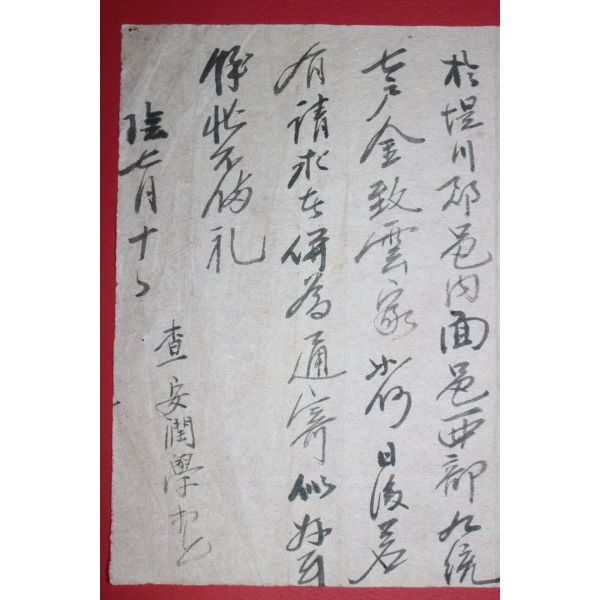 於堤川郡邑內面邑西部九統
七戶金致雲家 如何 日後若
有請求在併爲通寄似好耳
餘姑不備礼
陰七月十
查安潤學